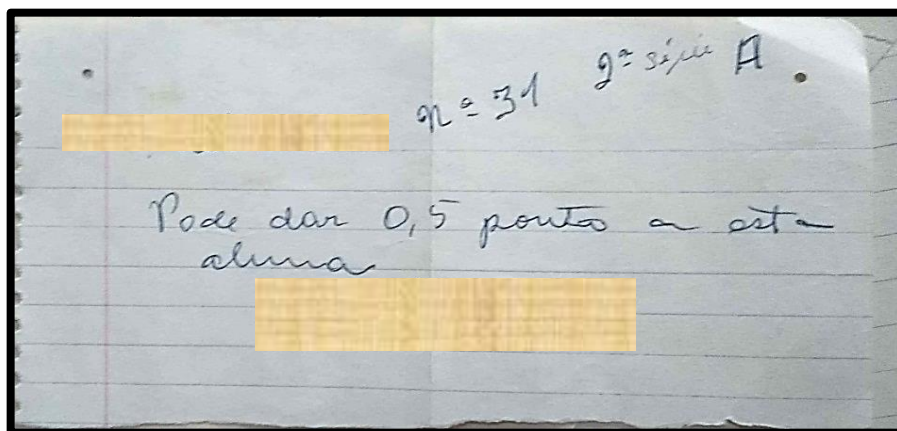 nº 31 2ª série A
Pode dar 0,5 ponto a esta
aluna